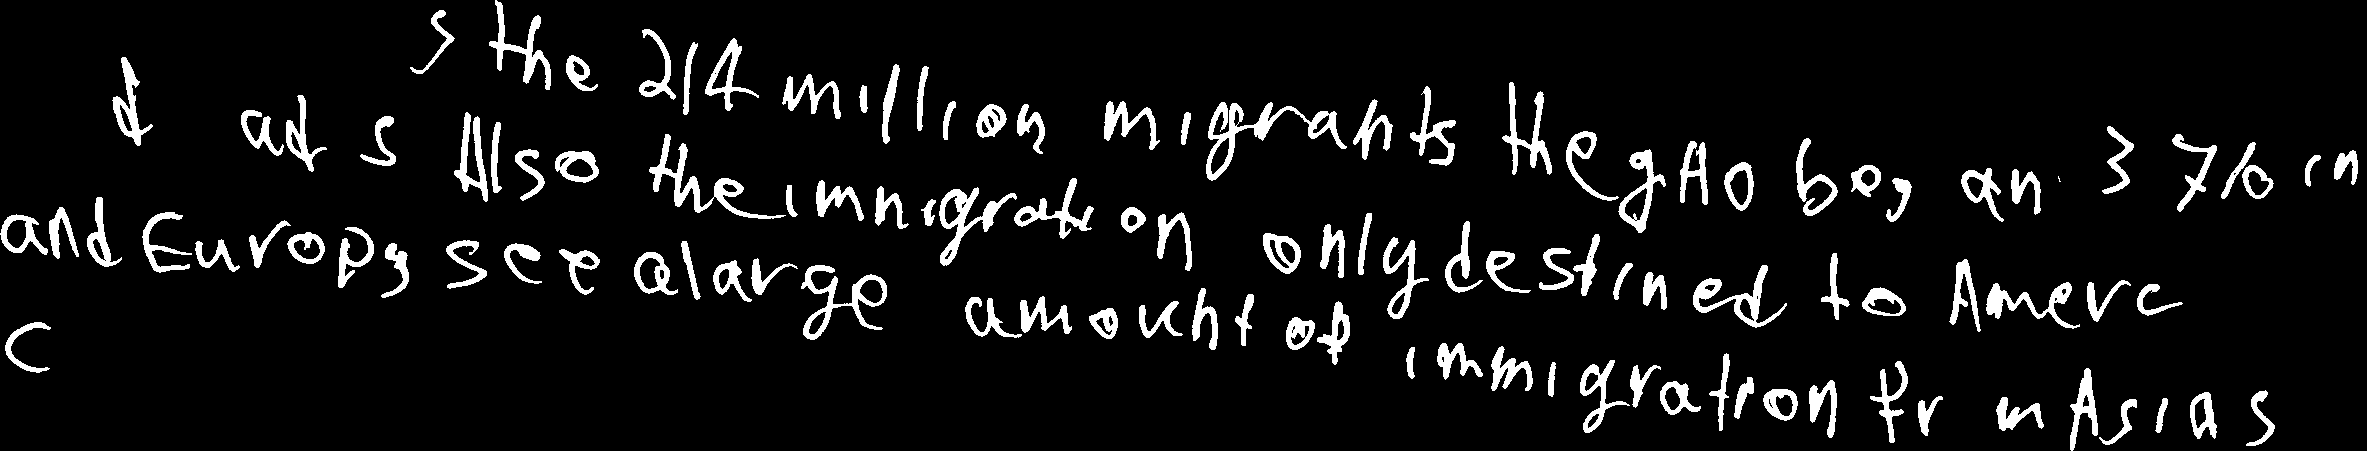 s the 214 million migrants the gAO bos an 3 7% in
d ad s Also the imnigration only destined to Amerc
and Europs see a large amount of immigration fr m Asias
c